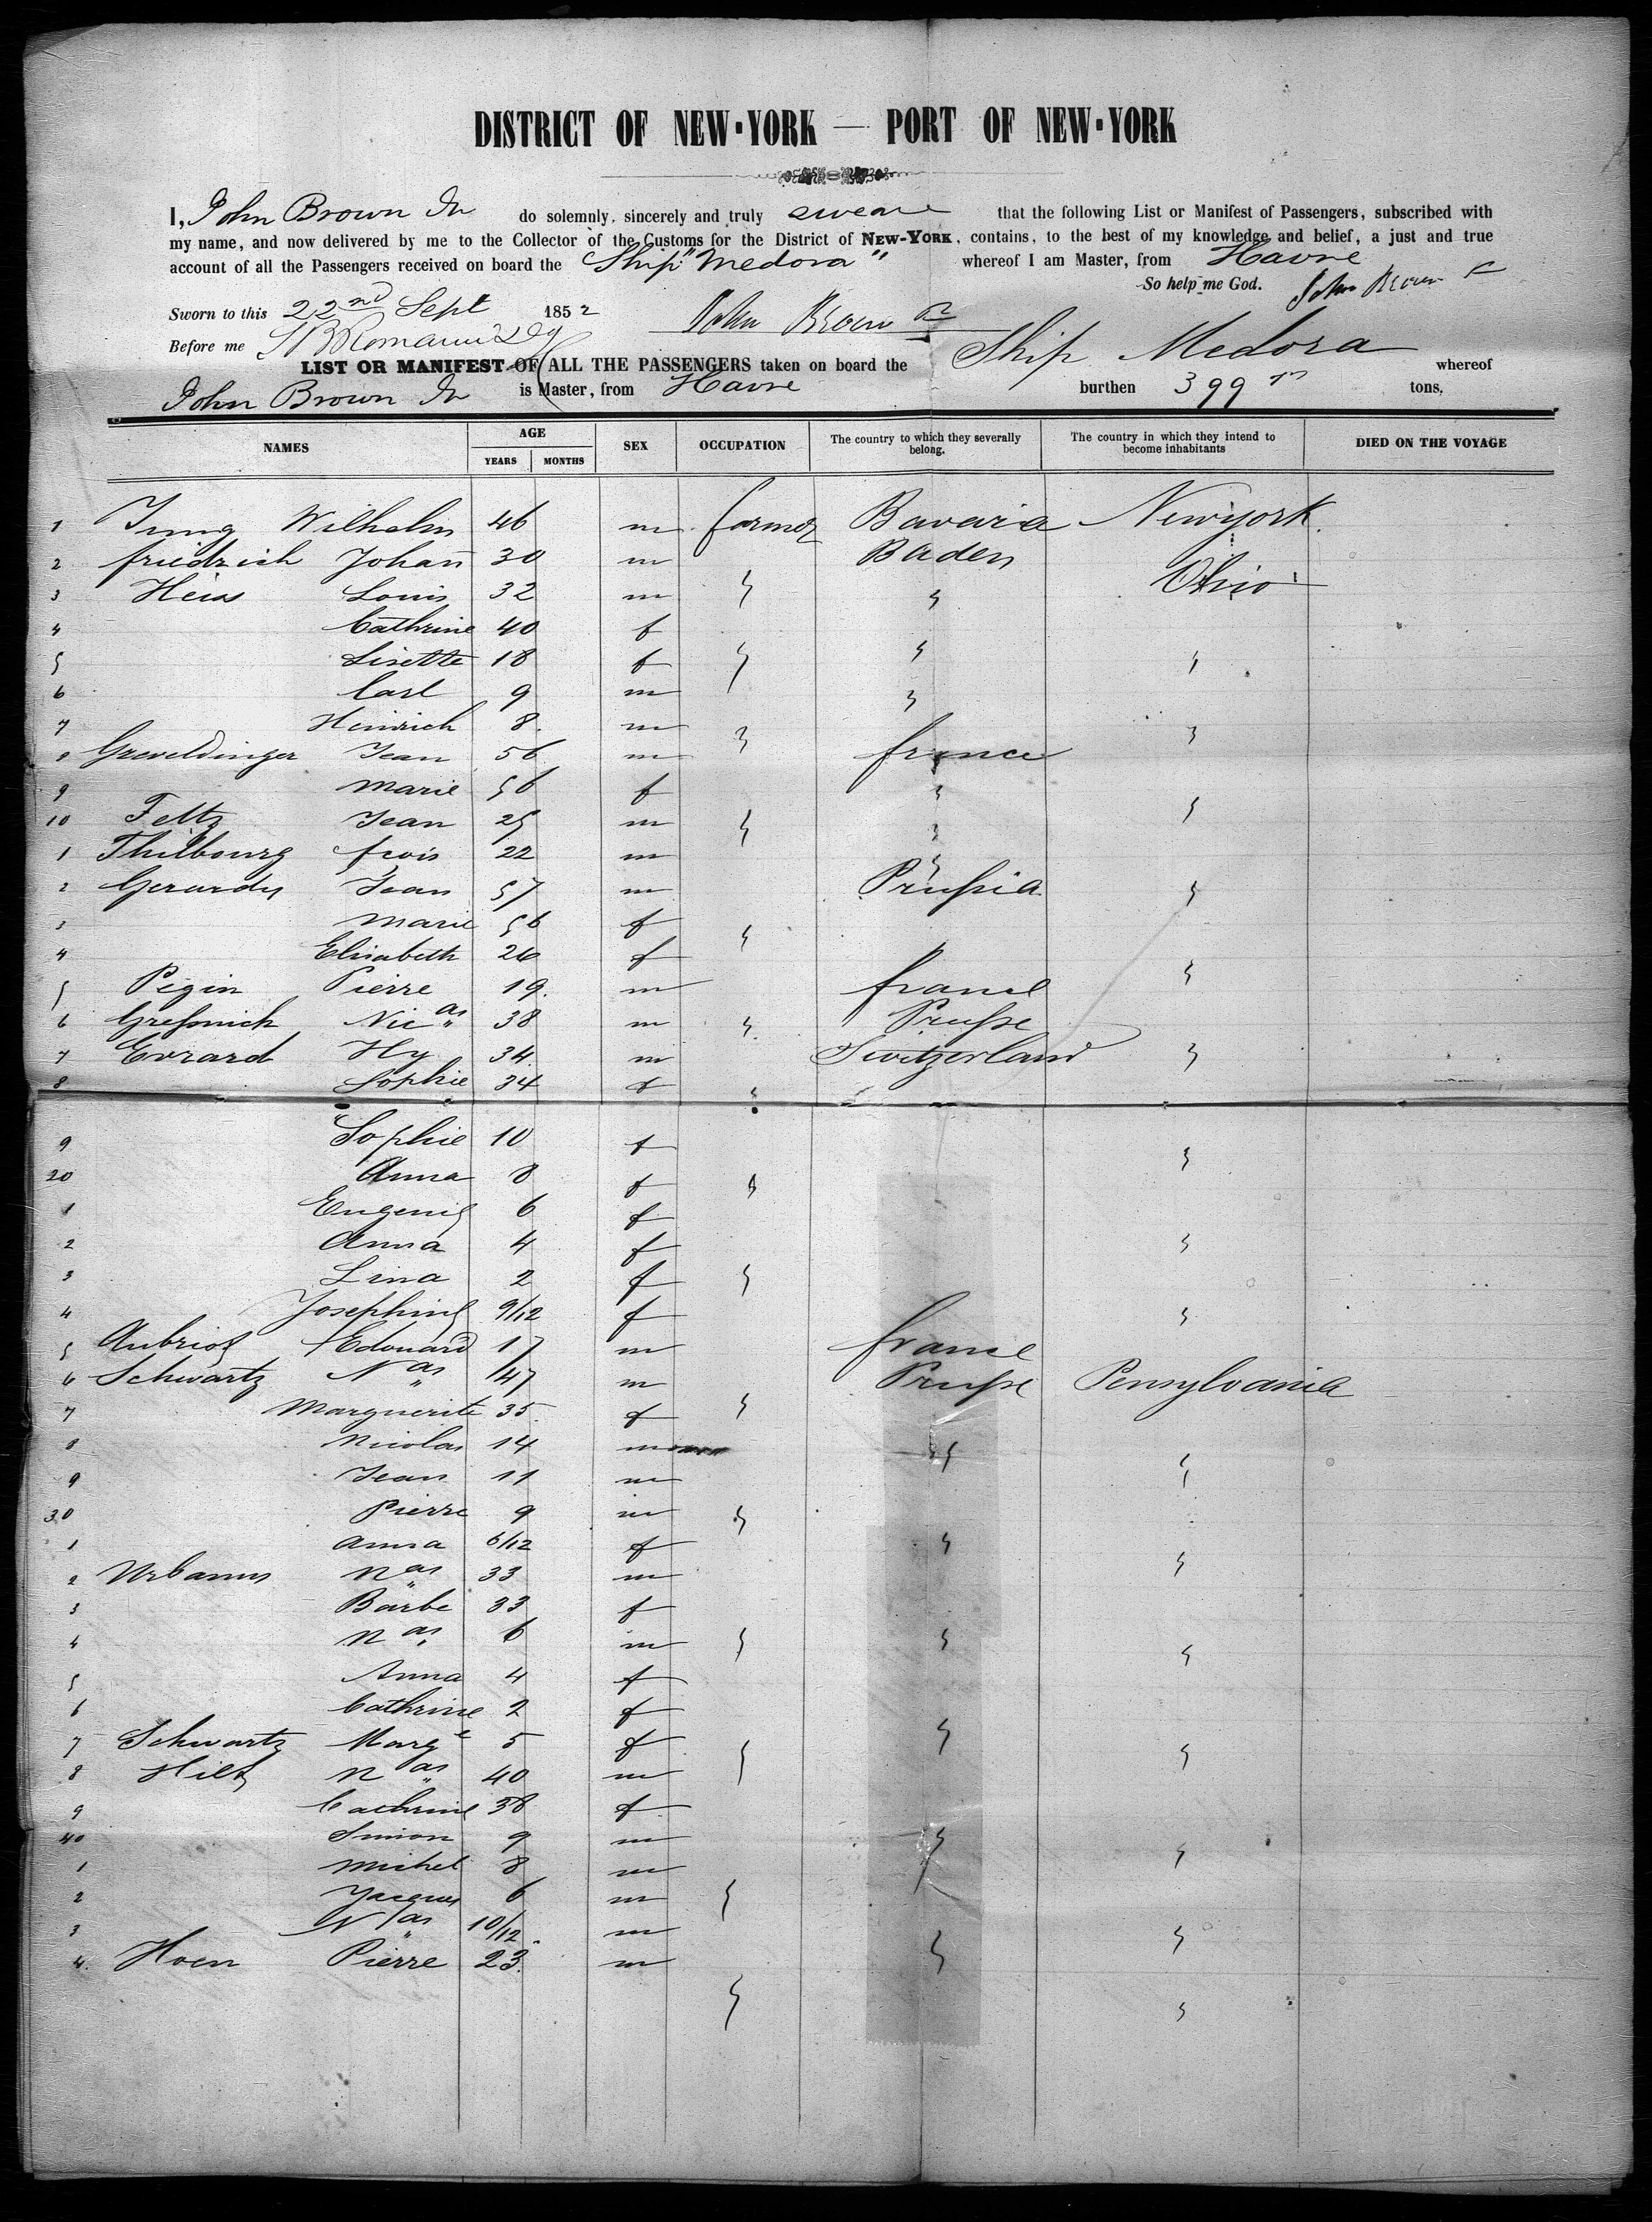 DISTRICT OF NEW-YORK — PORT OF NEW-YORK
I, John Brown Jr do solemnly, sincerely and truly swear that the following List or Manifest of Passengers, subscribed with
my name, and now delivered by me to the Collector of the Customs for the District of NEW-YORK, contains, to the best of my knowledge and belief, a just and true
account of all the Passengers received on board the Ship "Medora" whereof I am Master, from Havre
So help me God. John Brown Jr
Sworn to this 22nd Sept 1852 John Brown Jr
Before me
LIST OR MANIFEST OF ALL THE PASSENGERS taken on board the Ship Medora whereof
John Brown Jr is Master, from Havre burthen 399 tons.
NAMES AGE YEARS MONTHS SEX OCCUPATION The country to which they severally belong. The country in which they intend to become inhabitants DIED ON THE VOYAGE
1 Jung Wilhelm 46 m farmer Bavaria Newyork
2 friedrich Johan̄ 30 m Baden
3 Heiss Louis 32 m Ohio
4 Cathrine 40 f
5 Lisette 18 f
6 Carl 9 m
7 Heinrich 8 m
8 Greveldinger Jean 56 m france
9 Marie 56 f
10 Feltz Jean 25 m
1 Thilbourg frois 22 m
2 Gerardy Jean 57 m Prussia
3 Marie 56 f
4 Elisabeth 26 f
5 Pegin Pierre 19 m france
6 Gressnich Nicas 38 m Prusse
7 Evrard Hy 34 m Switzerland
8 Sophie 34 f
9 Sophie 10 f
20 Anna 8 f
1 Eugenie 6 f
2 Anna 4 f
3 Lina 2 f
4 Josephine 9/12 f
5 Aubriot Edouard 17 m france
6 Schwartz Nas 47 m Prusse Pensylvania
7 Marguerite 35 f
8 Nicolas 14 m
9 Jean 11 m
30 Pierre 9 m
1 Anna 6/12 f
2 Urbanus Nas 33 m
3 Barbe 33 f
4 Nas 6 m
5 Anna 4 f
6 Cathrine 2 f
7 Schwartz Marge 5 f
8 Hilt Nas 40 m
9 Cathrine 38 f
40 Simon 9 m
1 Michel 8 m
2 Jacques 6 m
3 Nas 10/12 m
4 Hoen Pierre 23 m